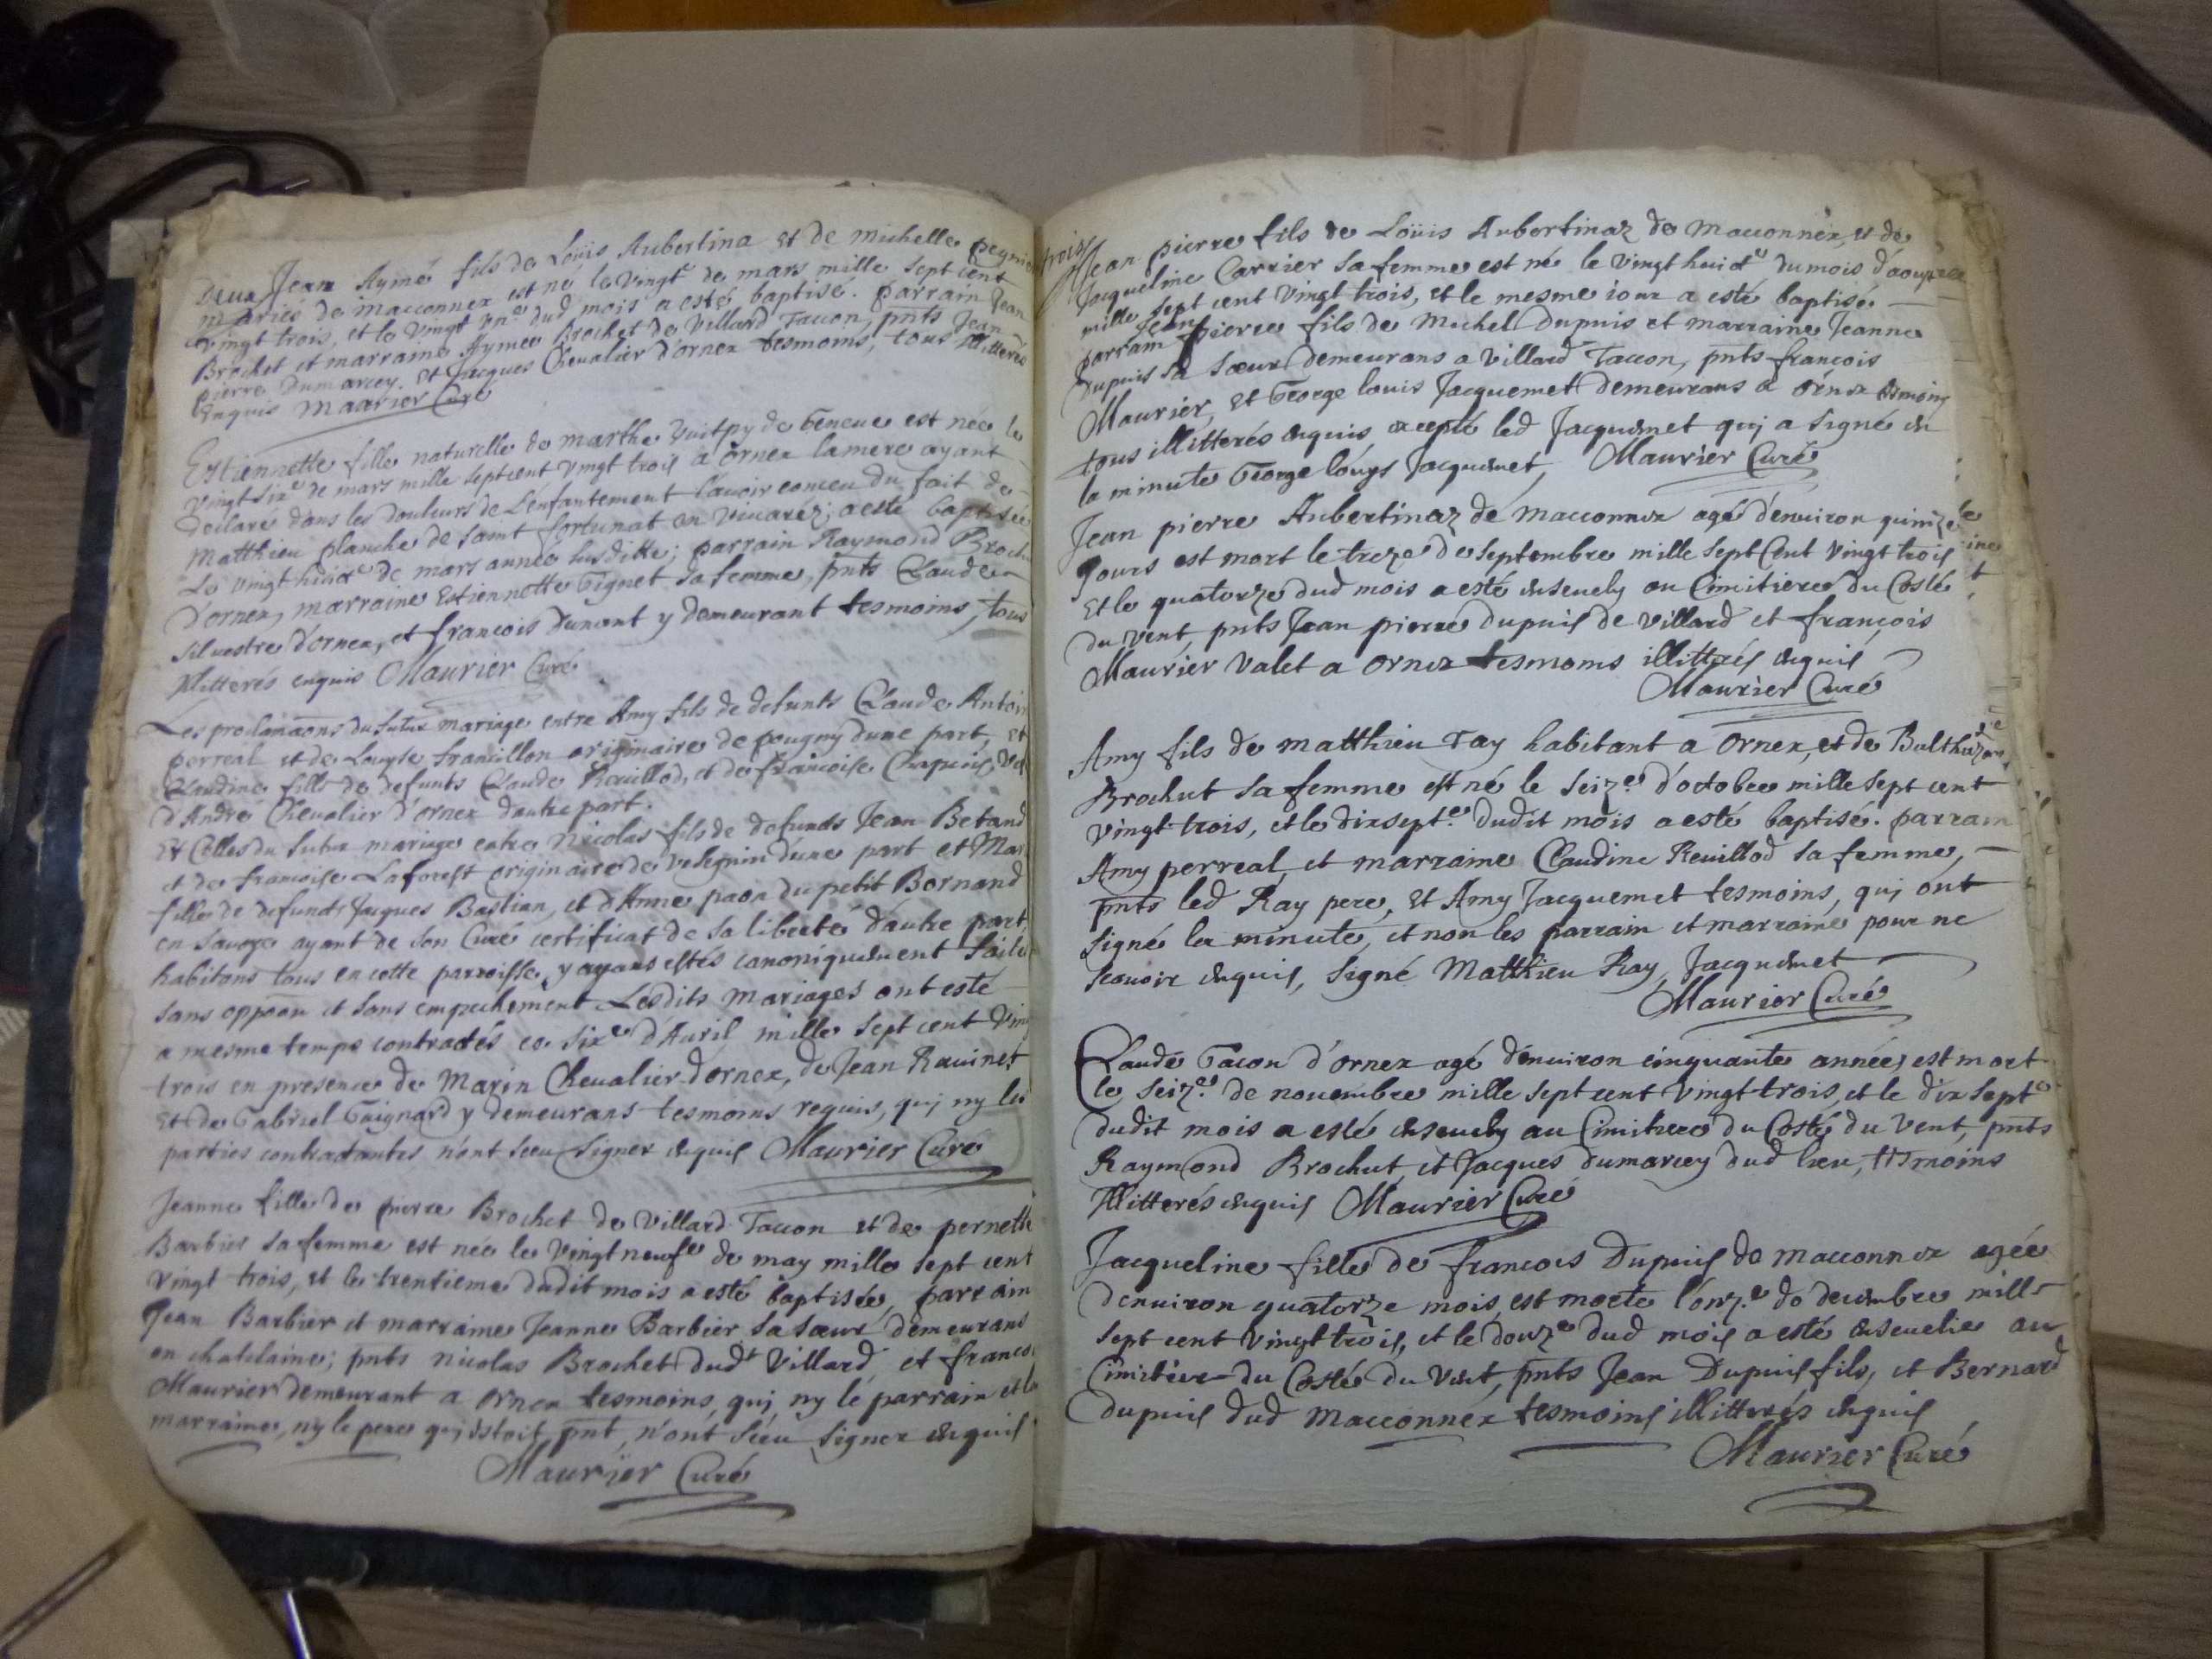 Deux Jean Aymé fils de Loüis Aubertina et de michelle
mariés de macconnex est né le vingt de mars mille sept cent
vingt trois, et le vingt un dud mois a esté baptisé. parrain Jean
Brochet et marraine Aymee Brochet de Villard Taccon, pnts Jean
pierre Dumarcey, et Jacques Chevalier d'ornex tesmoins, tous illitterés
enquis Maurier Curé
Estiennette fille naturelle de marthe de Geneve est née le
vingt six.e de mars mille septcent vingt trois a ornex la mere ayant
declaré dans les douleurs de L'enfantement l'auoir conceu du fait de
Matthieu planche de saint fortunat en viuaréz; a esté baptisée
Le vingt huict.e de mars année susditte; parrain Raymond
D'ornex, marraine Estiennette Gignet sa femme, pnts Claude
siluestre d'ornex, et francois dunant y demeurant tesmoins, tous
Illitterés enquis Maurier Curé
Les proclamaons du futur mariage entre Amy fils de defunts Claude
perreal et de Louyse francillon originaire de pougny dune part, et
Claudine fille de defunts Claude Reuillod, et de francoise
d'André Chevalier d'ornex dautre part.
Et Celles du futur mariage entre Nicolas fils de defunds Jean Betand
et de francoise Laforest originaire de d'une part et
fille de defunds Jacques Bastian, et d'Anne du petit Bornand
en sauoye ayant de son Curé certificat de sa liberté d'autre part,
habitans tous en cette parroisse, y ayans estés canoniquement
sans oppoon et sans empechement Lesdits mariages ont esté
a mesme temps contractés ce six.e d'Auril mille sept cent
trois en presence de Marin Chevalier d'ornex, de Jean Rauinet
Et de Gabriel Guignard y demeurans tesmoins requis, qui ny les
parties contractantes n'ont sceu signer enquis Maurier Curé
Jeanne fille de pierre Brochet de Villard Taccon et de
Barbier sa femme est née le vingt neufe de may mille sept cent
vingt trois, et le trentieme dudit mois a esté baptisée, parrain
Jean Barbier et marraine Jeanne Barbier sa sœur demeurans
en chatelaine; pnts nicolas Brochet dudt Villard et
Maurier demeurant a ornex tesmoins, qui ny le parrain et la
marraine, ny le pere qui estoit pnt, n'ont sceu signer enquis
Maurier Curé
trois Jean pierre fils de Loüis Aubertinaz de macconnex, et de
Jacqueline Carrier sa femme est né le vingt huict.e du mois
mille sept cent vingt trois, et le mesme iour a esté baptisé
parrain Jean pierre fils de Michel Dupuis et marraine Jeanne
Dupuis sa sœur demeurans a Villard Taccon, pnts francois
Maurier, et George louis Jacquemet demeurans a ornex tesmoins
tous illitterés enquis, excepté led Jacquemet qui a signé en
la minute George loüys Jacquemet, Maurier Curé
Jean pierre Aubertinaz de macconnex agé d'enuiron quinze
Jours est mort le treze de septembre mille sept Cent vingt trois
Et le quatorze dud mois a esté enseuely au Cimitiere du Costé
du vent, pnts Jean pierre dupuis de villard et francois
Maurier valet a ornex tesmoins illitterés enquis
Maurier Curé
Amy fils de matthieu ray habitant a ornex, et de
Brochut sa femme est né le seize.e d'octobre mille sept cent
vingt trois, et le dixsept.e dudit mois a esté baptisé. parrain
Amy perreal, et marraine Claudine Reuillod sa femme,
pnts led Ray pere, et Amy Jacquemet tesmoins, qui ont
signé la minute, et non les parrain et marraine pour ne
scauoir enquis, signé Matthieu Ray, Jacquemet
Maurier Curé
Claude Tacon d'ornex agé d'enuiron cinquante années est mort
le seiz.e de nouembre mille sept cent vingt trois, et le dix sept.e
dudit mois a esté enseuely au Cimitiere du Costé du vent, pnts
Raymond Brochut, et Jacques dumarcey dud lieu, tesmoins
Illitterés enquis Maurier Curé
Jacqueline fille de francois Dupuis de macconnex agée
denuiron quatorze mois est morte l'onz.e de decembre mille
sept cent vingt trois, et le douze dud mois a esté enseuelie au
Cimitiere du Costé du vent, pnts Jean Dupuis fils, et Bernard
dupuis dud macconnex tesmoins illitterés enquis
Maurier Curé